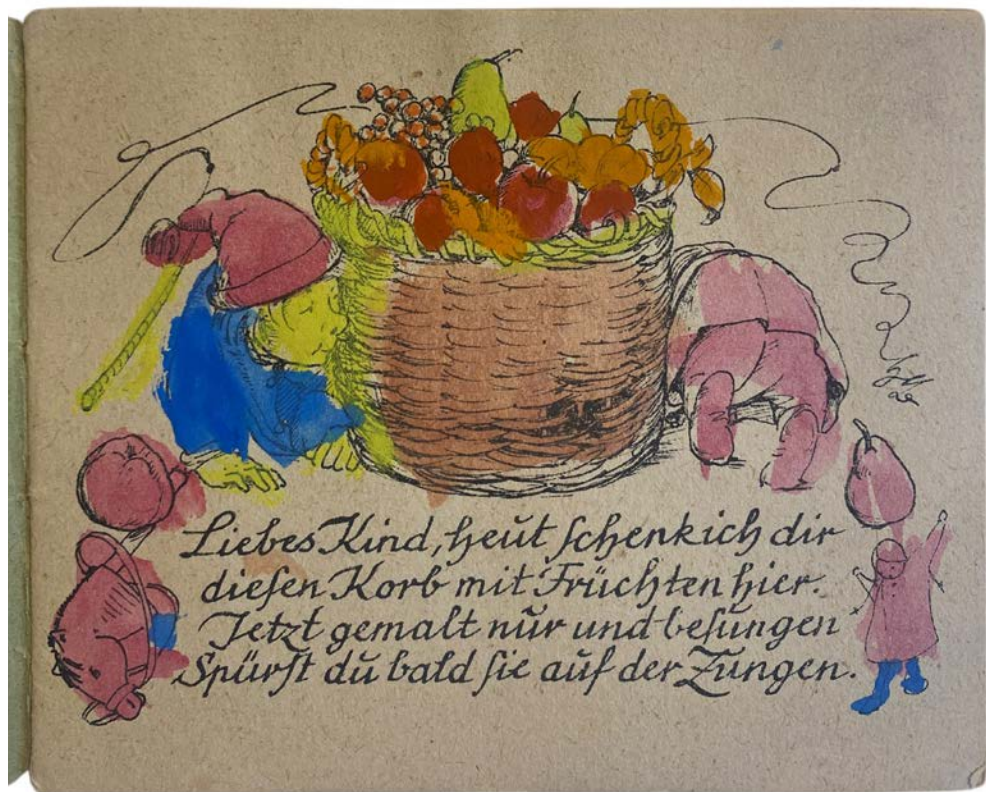 Liebes Kind, heut schenk ich dir
diesen Korb mit Früchten hier.
Jetzt gemalt nur und besungen
Spürst du bald sie auf der Zungen.